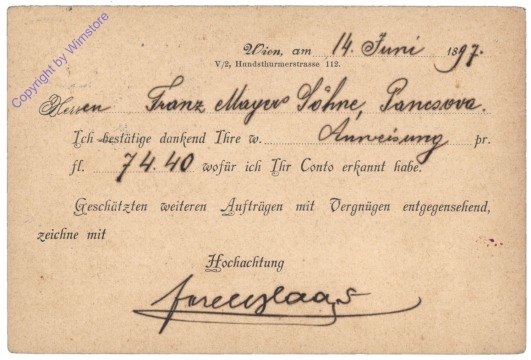 Copyright by Wimstore
Wien, am 14. Juni 1897.
V/2, Hundsthurmerstrasse 112.
Herren Franz Mayers Söhne, Pancsova.
Ich bestätige dankend Ihre w. Anweisung pr.
fl. 74.40 wofür ich Ihr Conto erkannt habe.
Geschätzten weiteren Aufträgen mit Vergnügen entgegensehend,
zeichne mit
Hochachtung